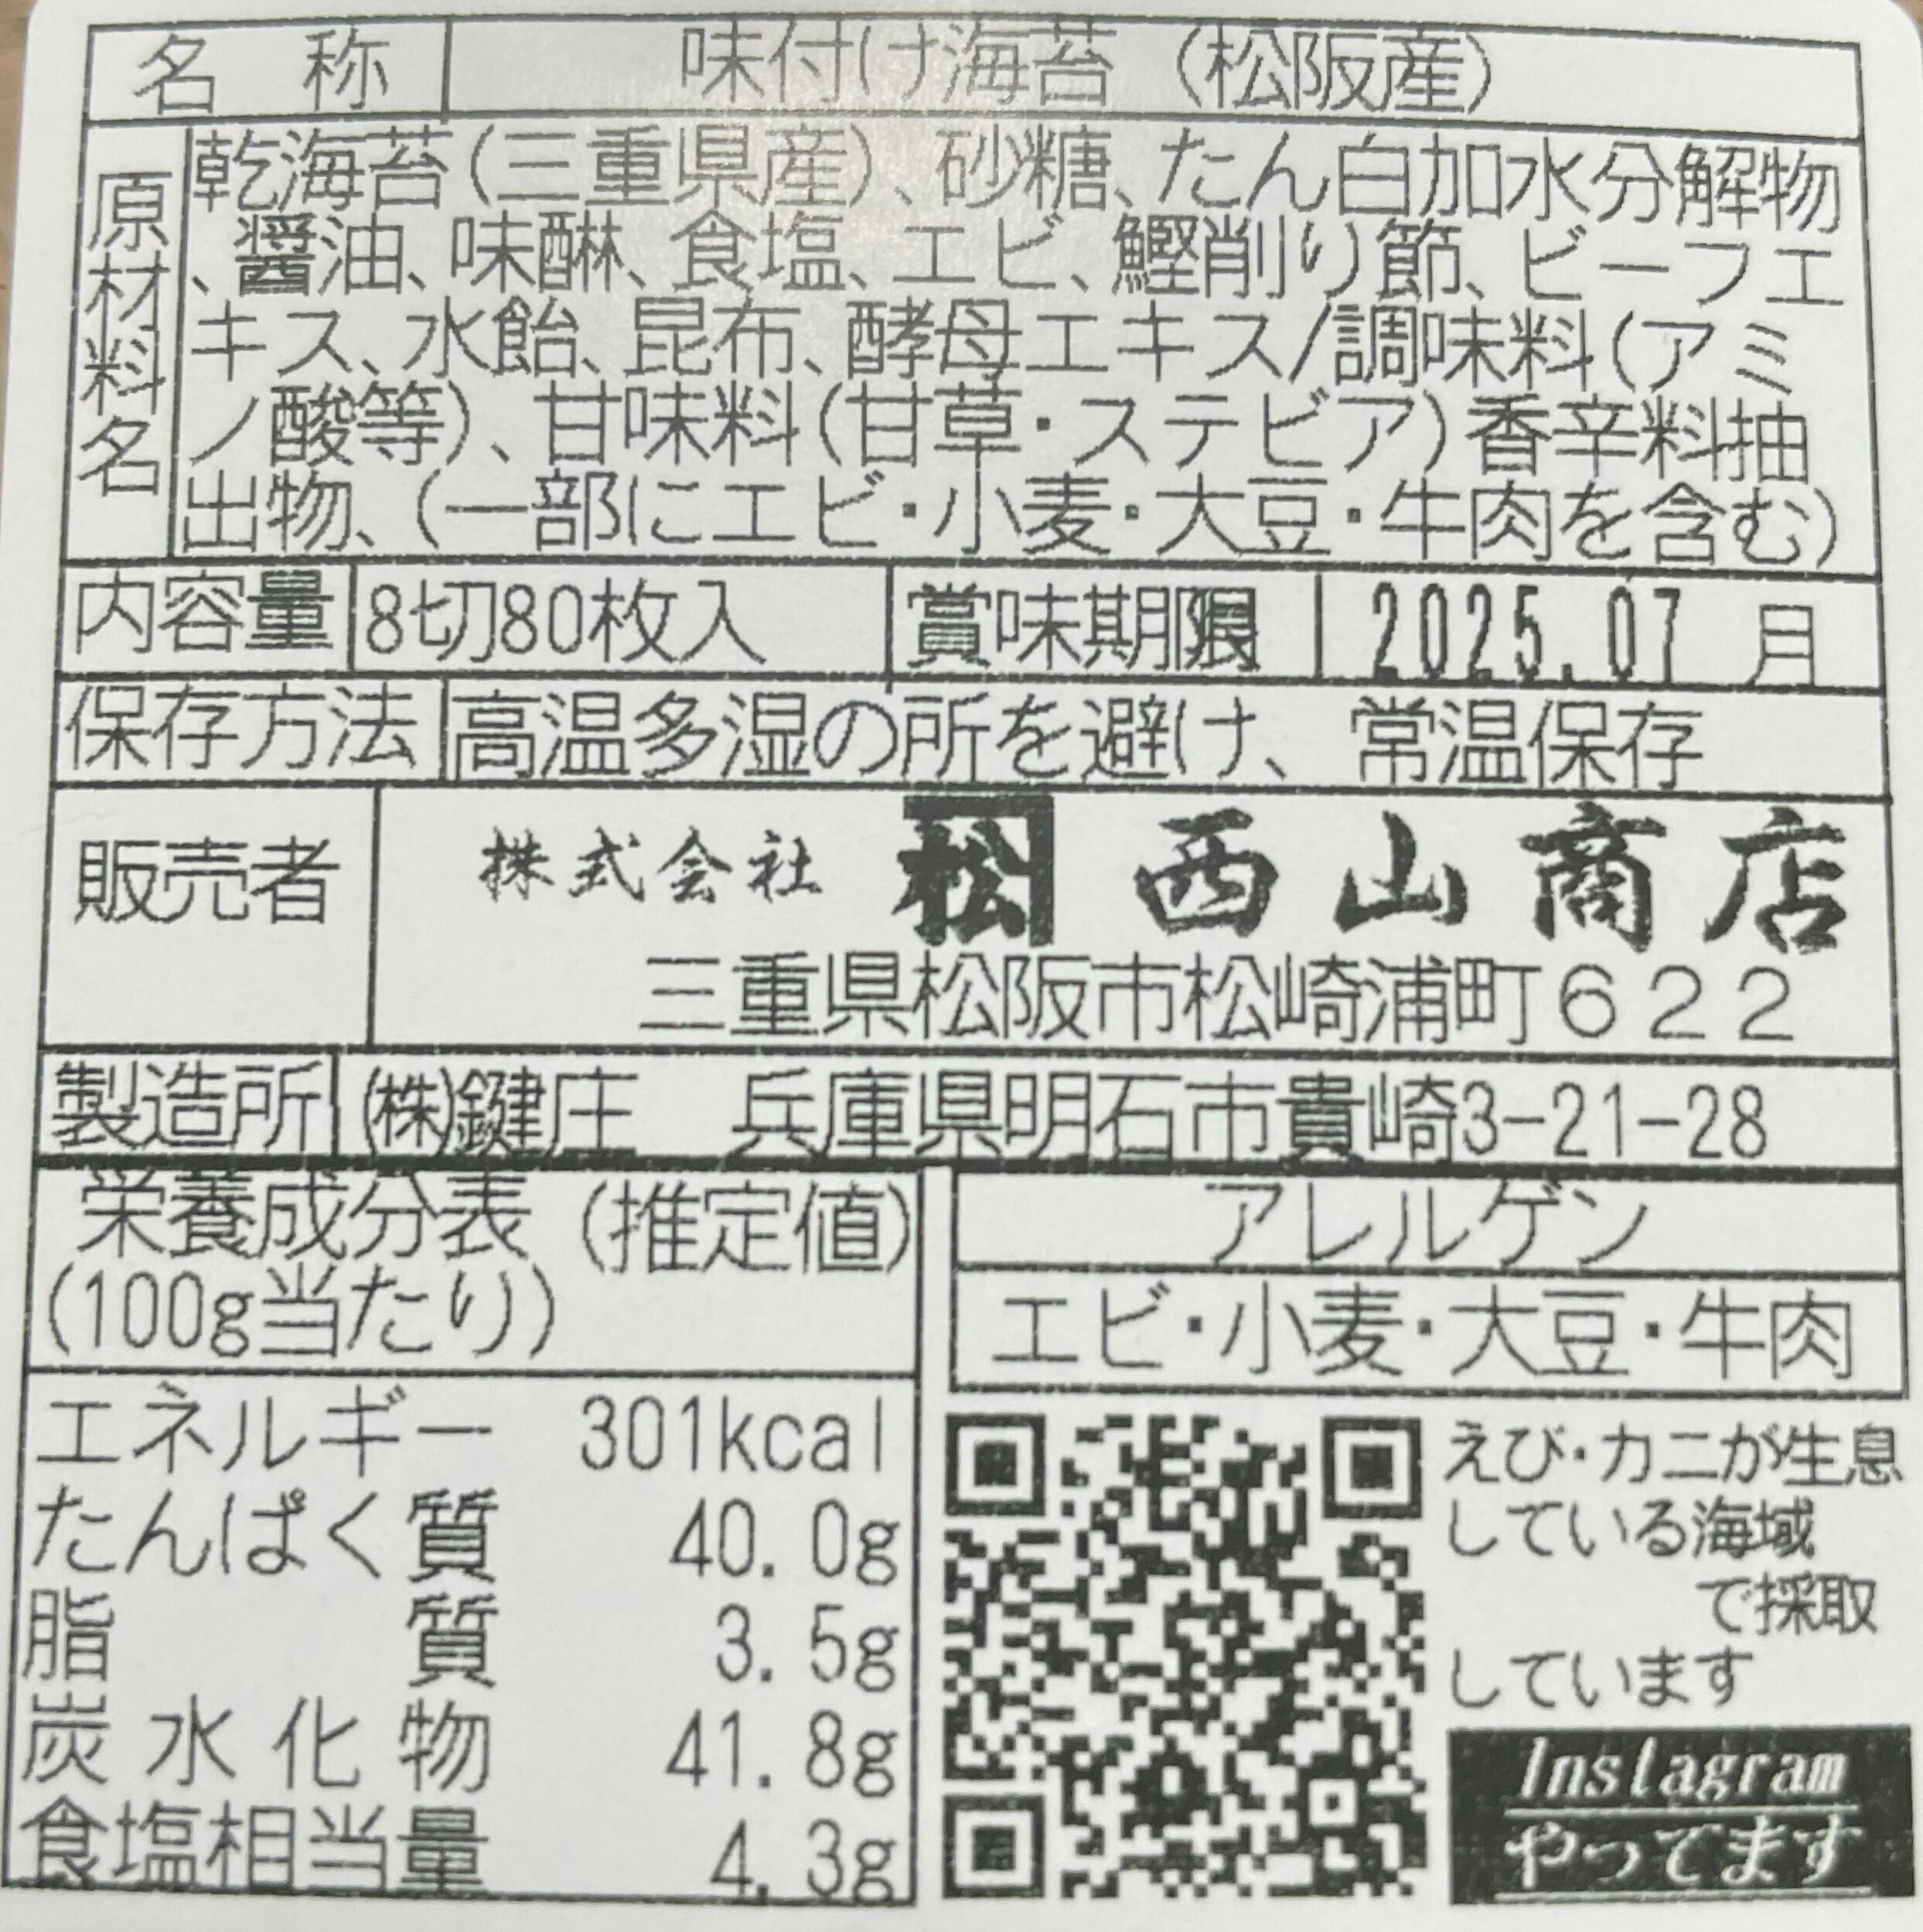 名称 味付け海苔（松阪産）
原材料名
乾海苔(三重県産)、砂糖、たん白加水分解物
、醤油、味醂、食塩、エビ、鰹削り節、ビーフエ
キス、水飴、昆布、酵母エキス/調味料(アミ
ノ酸等)、甘味料(甘草・ステビア)香辛料抽
出物、(一部にエビ・小麦・大豆・牛肉を含む)
内容量 8切80枚入 賞味期限 2025.07 月
保存方法 高温多湿の所を避け、常温保存
販売者 株式会社 松 西山商店
三重県松阪市松崎浦町６２２
製造所 (株)鍵庄 兵庫県明石市貴崎3-21-28
栄養成分表 (推定値)
(100g当たり)
エネルギー 301kcal
たんぱく質 40.0g
脂質 3.5g
炭水化物 41.8g
食塩相当量 4.3g
アレルゲン
エビ・小麦・大豆・牛肉
えび・カニが生息
している海域
で採取
しています
Instagram
やってます